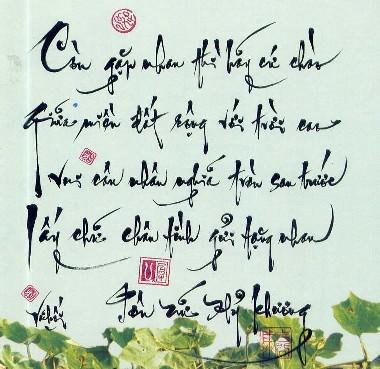 Còn gặp nhau thì hãy cứ chào
Giữa miền đất rộng với trời cao
Vui câu nhân nghĩa tròn sau trước
Lấy chữ chân tình gửi tặng nhau
Tôn Nữ Hỷ Khương